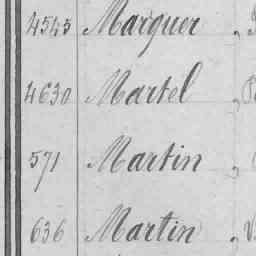 4545 Marquer
4630 Martel
571 Martin
636 Martin